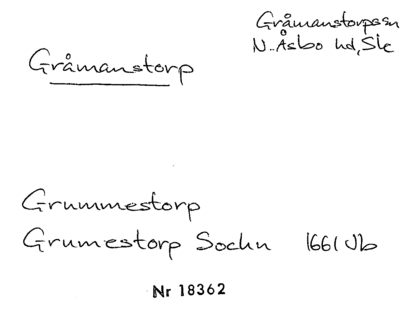 Gråmanstorpssn
N. Åsbo hd, Sk
Gråmanstorp
Grummestorp
Grumestorp Sochn 1661 Jb
Nr 18362